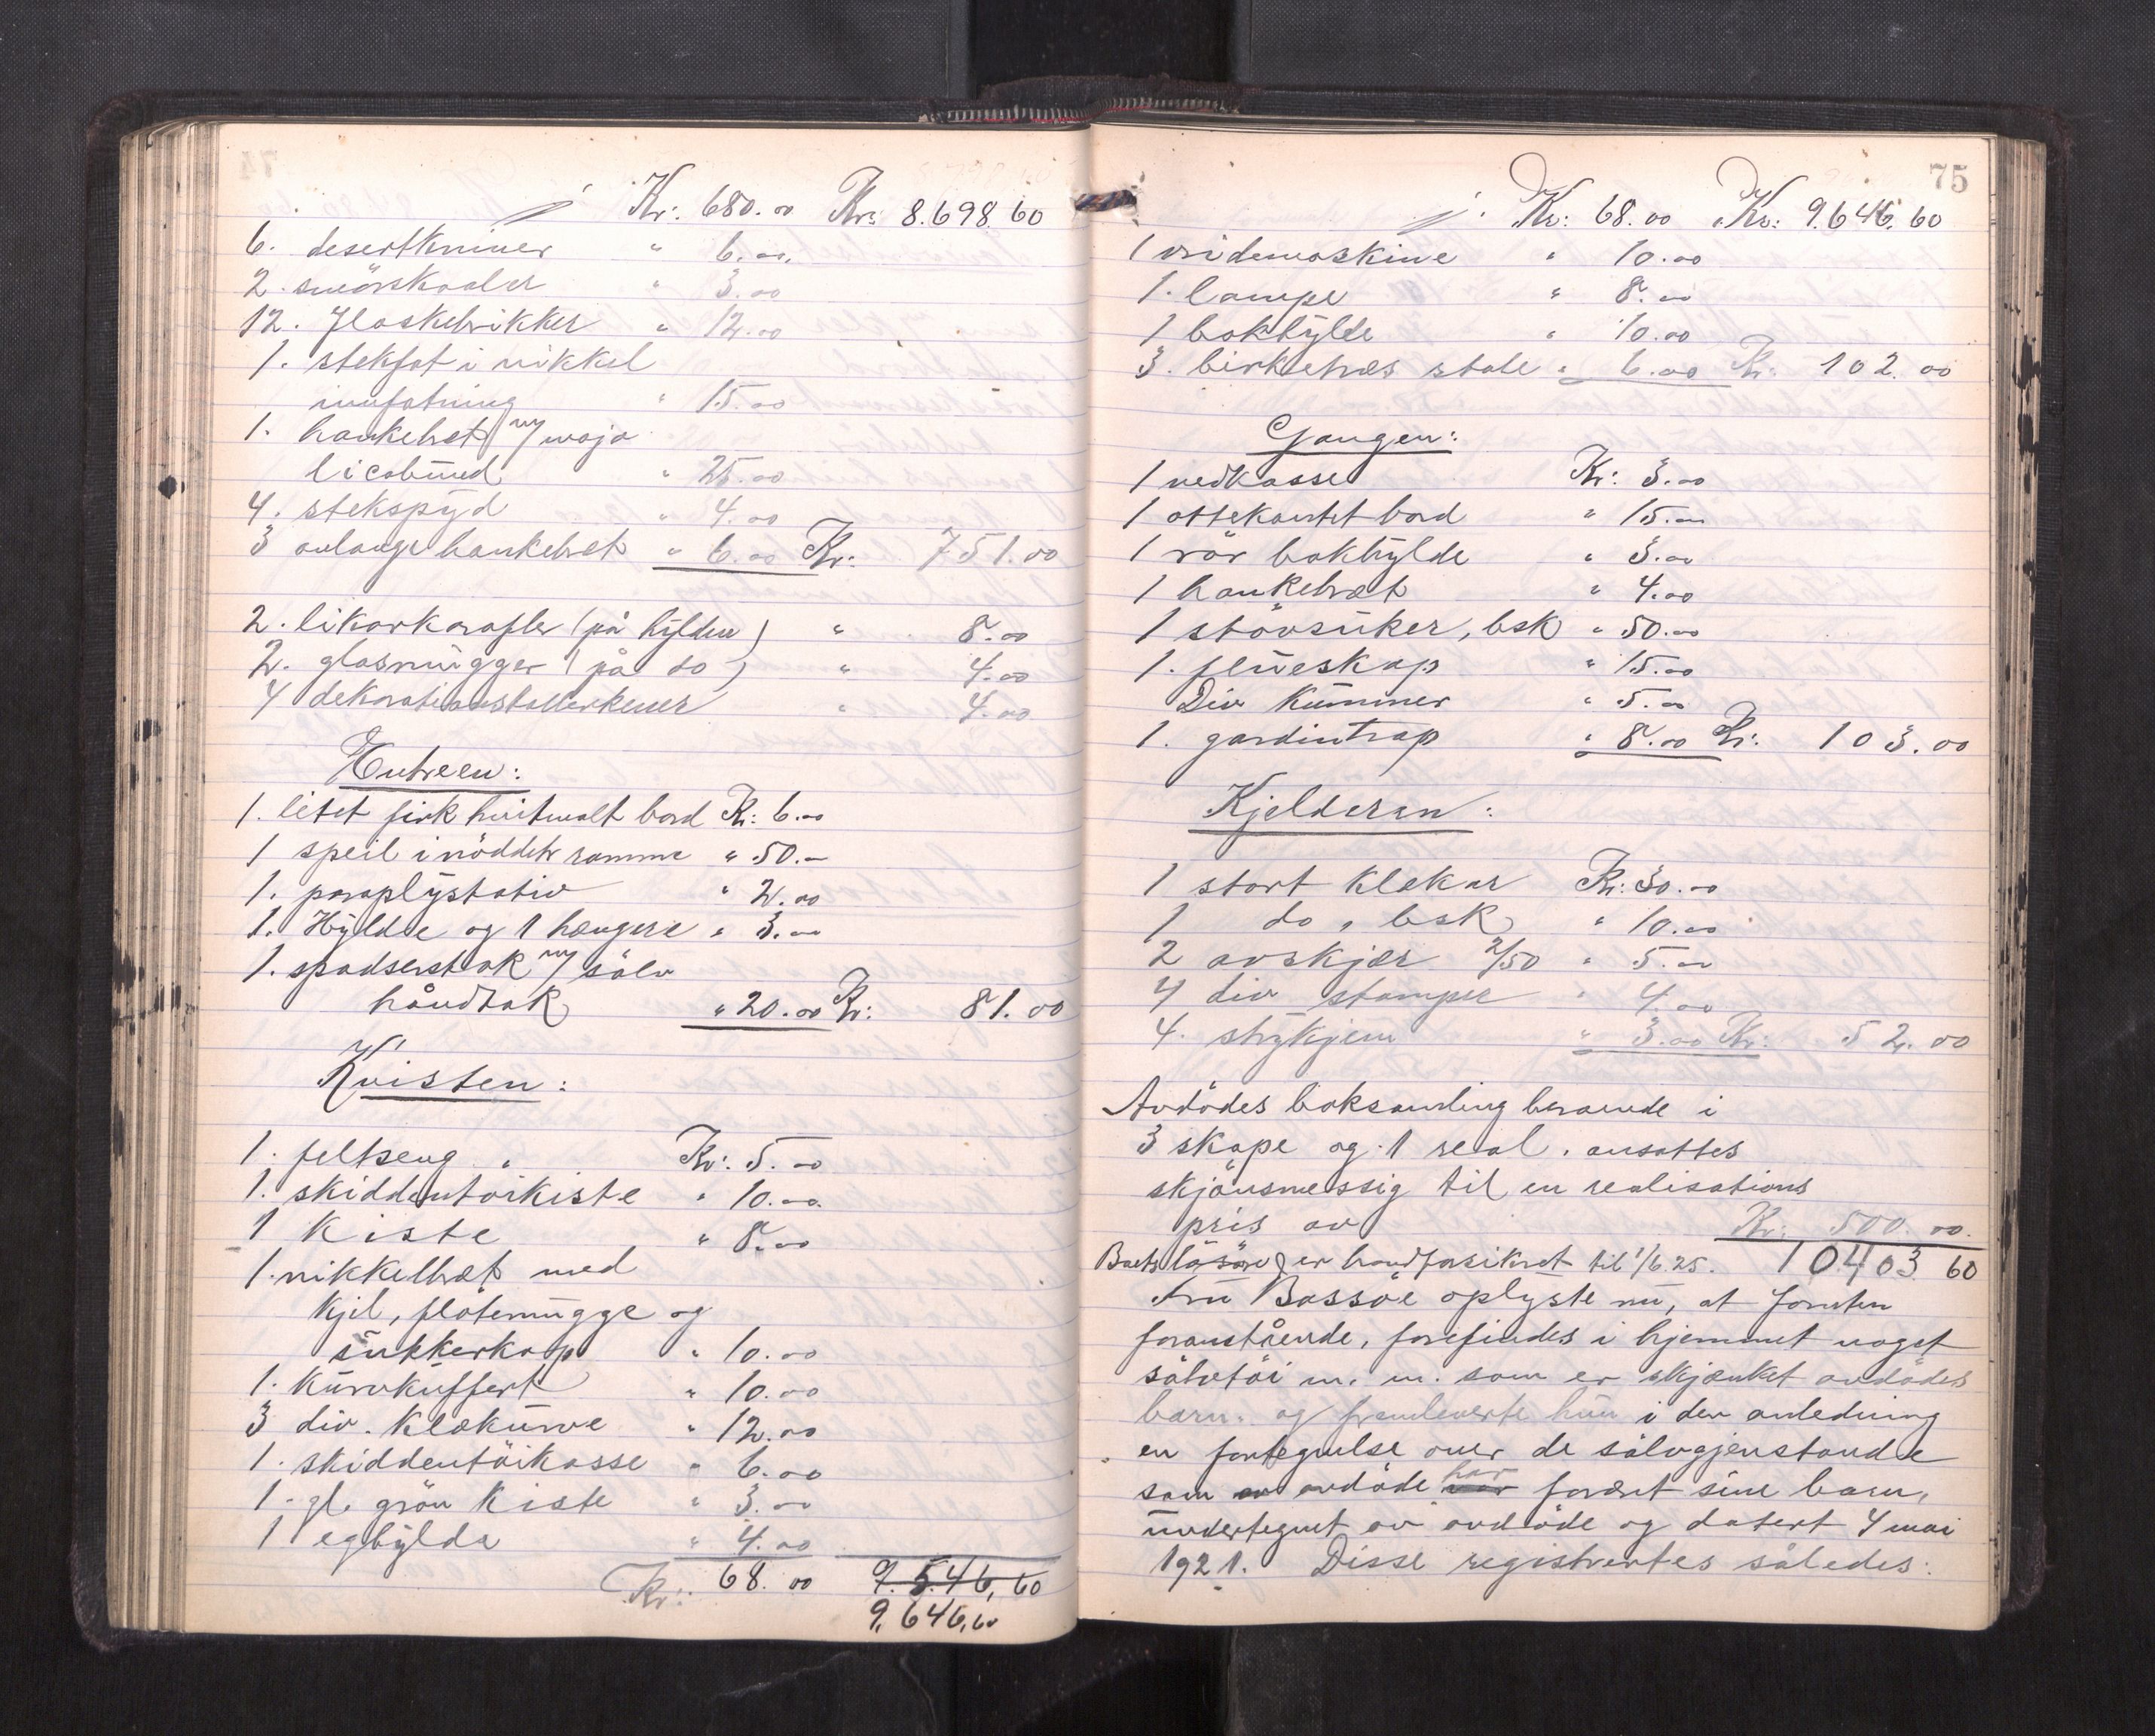 Kr: 680.00 Kr: 8.698.60
6. desertkniver " 6.00
2. smörskaaler " 3.00
12. flaskebrikker " 12.00
1. stekfat i nikkel
innfatning " 15.00
1. hankebret m/ majo
licabund " 25.00
4. stekspyd " 4.00
3 avlange hankebret " 6.00 Kr: 751.00
2. likørkarafler (på hylden) " 8.00
2. glasmugger (på do) " 4.00
4 dekorationstallerkener " 4.00
Entreen:
1. litet firk hvitmalt bord Kr: 6.00
1 speil i nöddetr ramme " 50.-
1. paraplystativ " 2.00
1. Hylde og 1 hængere " 3.00
1. spadserstok m/ sölv
håndtak " 20.00 Kr: 81.00
Kvisten:
1. feltseng " Kr: 5.00
1. skiddentöikiste " 10.00
1 Kiste " 8.00
1. nikkelbræt med
kjel, flötemugge og
sukkerkop " 10.00
1. Kurvkuffert " 10.00
3 div. Klækurve " 12.00
1. skiddentöikasse " 6.00
1. gl. grön Kiste " 3.00
1 eghylde " 4.00
Kr: 68.00 9.546,60
9,646,60
75
Kr: 68.00 Kr: 9.646,60
1 vridemaskine " 10.00
1. lampe " 8.00
1 bokhylde " 10.00
3. birketræs stole " 6.00 Kr: 102.00
Gangen:
1 vedkasse Kr: 3.00
1 ottekantet bord " 15.00
1 rör bokhylde " 3.00
1 hankebræt " 4.00
1 stövsuker, bsk " 50.00
1. flueskap " 15.00
Div Kummer " 5.00
1. gardintrap " 8.00 Kr: 103.00
Kjelderen:
1 stort klekar Kr: 30.00
1 do, bsk " 10.00
2 avskjær 2/50 " 5.00
4 div stamper " 4.00
4. strykjern " 3.00 Kr: 52.00
Avdödes boksamling beroende i
3 skape og 1 reol, ansattes
skjönsmessig til en realisations
pris av Kr: 500.00
Boets lösöre er brandforsikret til 1/6.25. 10403 60
Fru Bassöe oplyste nu, at foruten
foranstående, forefindes i hjemmet noget
sölvtöi m. m. som er skjænket avdödes
barn. og fremleverte hun i den anledning
en fortegnelse over de sölvgjenstande
som avdöde har foræret sine barn,
undertegnet av avdöde og datert 4 mai
1921. Disse registrertes således: